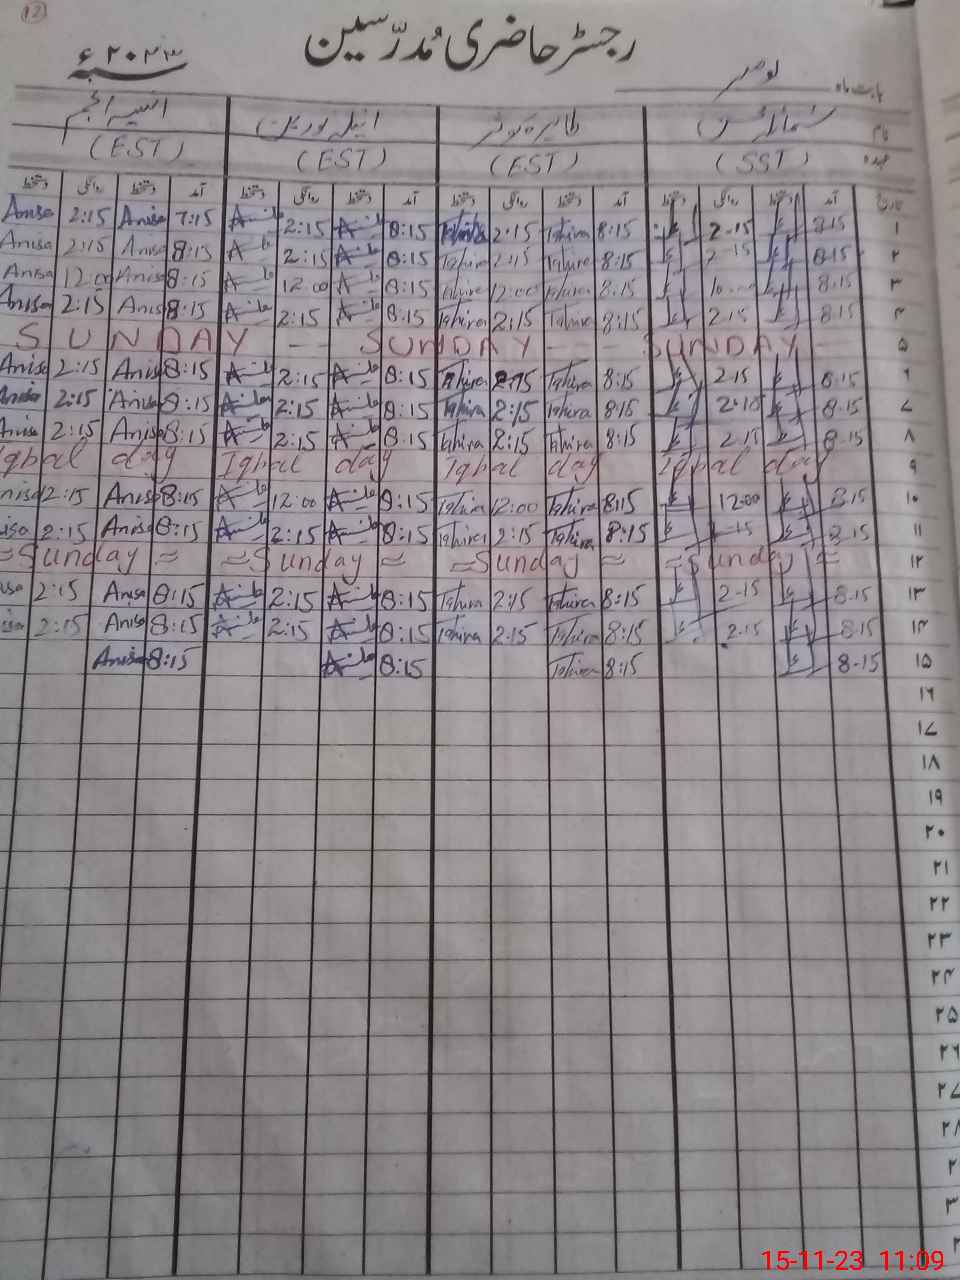 12
رجسٹر حاضری مُدرّسین
بابت ماہ نومبر سنہ ۲۰۲۳ ء
نام انیسہ انجم
عہدہ (SST) (EST) (EST) (EST)
تاریخ آمد دستخط روانگی دستخط آمد دستخط روانگی دستخط آمد دستخط روانگی دستخط آمد دستخط روانگی دستخط
۱ 8.15 2.15 8:15 Tahira 2:15 Tahira 8:15 2:15 7:15 Anisa 2:15 Anisa
۲ 8.15 2.15 8:15 Tahira 2:15 Tahira 8:15 2:15 8:15 Anisa 2:15 Anisa
۳ 8.15 8:15 Tahira 12:00 Tahira 8:15 12:00 8:15 Anisa 12:00 Anisa
۴ 8.15 2.15 8:15 Tahira 2:15 Tahira 8:15 2:15 8:15 Anisa 2:15 Anisa
۵ SUNDAY - - SUNDAY - - - SUNDAY -
۶ 8.15 2.15 8:15 Tahira 2:15 Tahira 8:15 2:15 8:15 Anisa 2:15 Anisa
۷ 8.15 2.15 8:15 Tahira 2:15 Tahira 8:15 2:15 8:15 Anisa 2:15 Anisa
۸ 8.15 2.15 8:15 Tahira 2:15 Tahira 8:15 2:15 8:15 Anisa 2:15 Anisa
۹ Iqbal day Iqbal day Iqbal day Iqbal day
۱۰ 8.15 12:00 8:15 Tahira 12:00 Tahira 8:15 12:00 8:15 Anisa 12:15 nisa
۱۱ 8.15 2.15 8:15 Tahira 2:15 Tahira 8:15 2:15 8:15 Anisa 2:15 isa
۱۲ ≈ Sunday ≈ ≈ Sunday ≈ ≈ Sunday ≈ ≈ Sunday ≈
۱۳ 8.15 2.15 8:15 Tahira 2:15 Tahira 8:15 2:15 8:15 Anisa 2:15 isa
۱۴ 8.15 2.15 8:15 Tahira 2.15 Tahira 8:15 2:15 8:15 Anisa 2:15 isa
۱۵ 8.15 8:15 Tahira 8:15 8:15 Anisa
۱۶
۱۷
۱۸
۱۹
۲۰
۲۱
۲۲
۲۳
۲۴
۲۵
۲۶
۲۷
۲۸
۲
۳
15-11-23 11:09